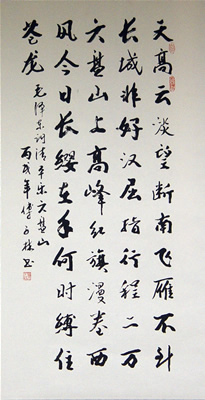 天高云淡望断南飞雁不到
长城非好汉屈指行程二万
六盘山上高峰红旗漫卷西
风今日长缨在手何时缚住
苍龙
毛泽东词清平乐六盘山
丙戌年傅 林书